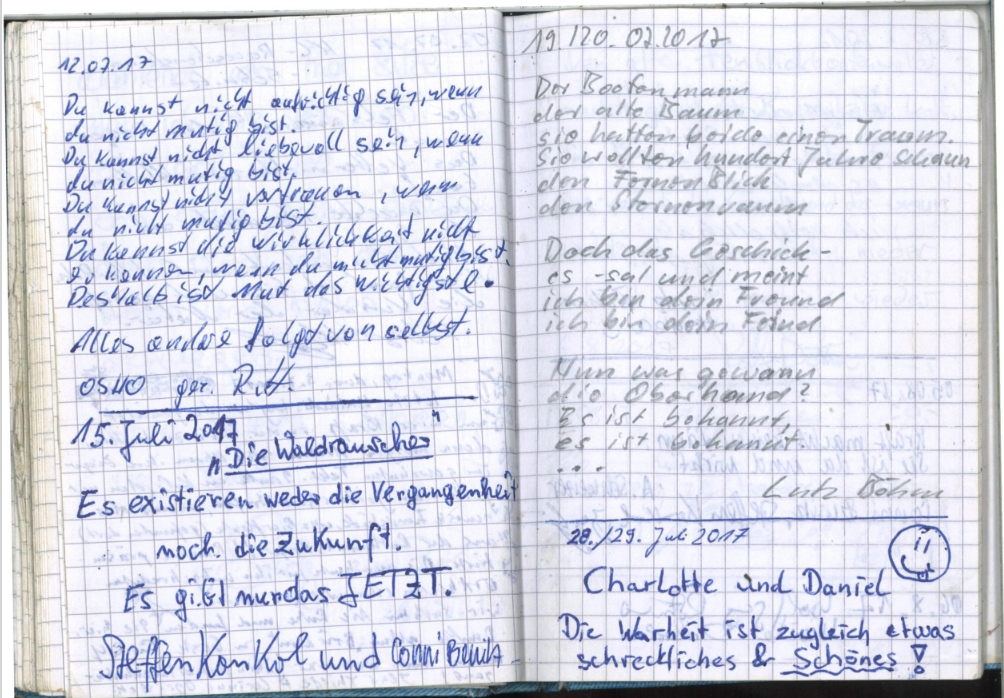 12.07.17
Du kannst nicht aufrichtig sein, wenn
du nicht mutig bist.
Du kannst nicht liebevoll sein, wenn
du nicht mutig bist.
Du kannst nicht vertrauen, wenn
du nicht mutig bist.
Du kannst die Wirklichkeit nicht
erkennen, wenn du nicht mutig bist.
Deshalb ist Mut das wichtigste.
Alles andere folgt von selbst.
OSHO gez. R.H.
15. Juli 2017
"Die Waldrauscher"
Es existieren weder die Vergangenheit
noch die Zukunft.
Es gibt nur das JETZT.
Steffen Konkol und Conni
19./20.07.2017
Der Bootenmann
der alte Baum
sie hatten beide einen Traum.
Sie wollten hundert Jahre schaun
den Fernenblick
den Sternenraum
Doch das Geschick -
es -sal und meint
ich bin dein Freund
ich bin dein Feind
Nun was gewann
die Oberhand?
Es ist bekannt,
es ist bekannt.
...
Lutz Böhm
28./29. Juli 2017
Charlotte und Daniel
Die Warheit ist zugleich etwas
schreckliches & Schönes!